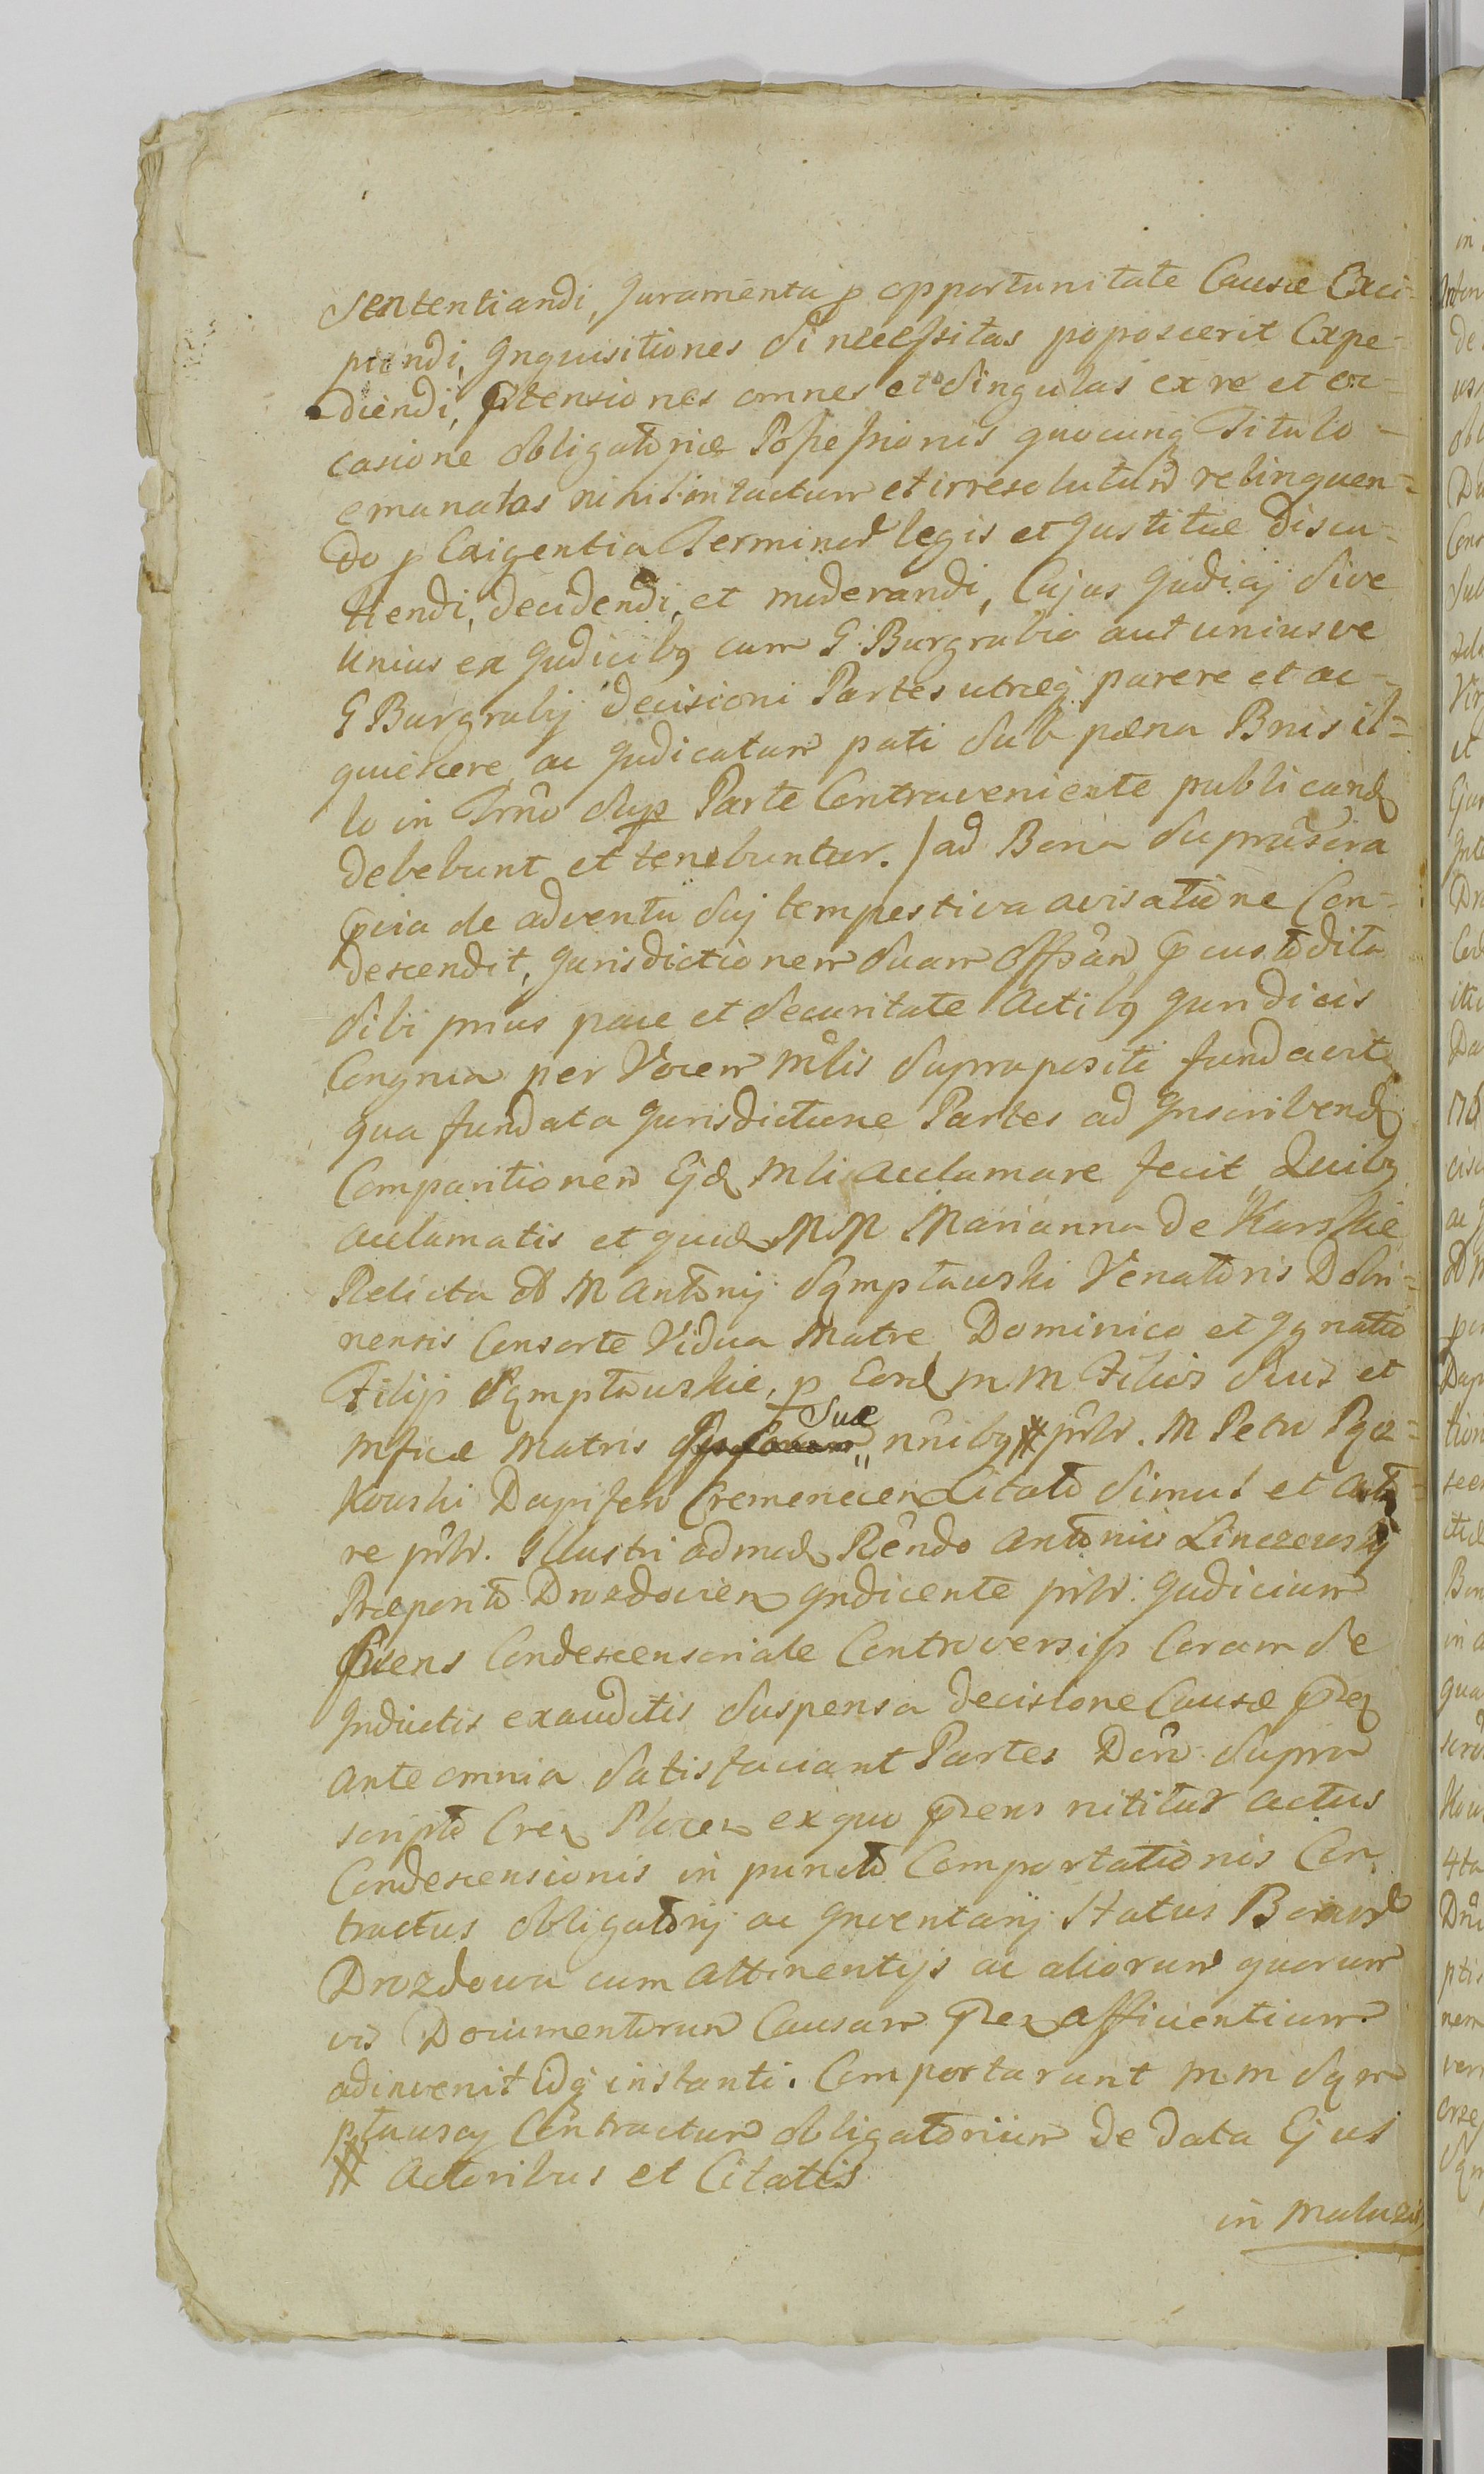 Sententiandi, Juramenta p opportunitate Causæ Exci-
piendi, Inquisitiones si necessitas poposcerit Expe-
diendi, Ptensiones omnes et singulas ex re et oc-
casione obligatoriæ Possessionis quocunq Titulo -
emanatas nihil intactum et irresolutum relinquen-
do p Exigentia Terminor legis et Justitiæ discu-
tiendi, decidendi, et moderandi, Cujus Judicij sive
Unius ex Judicibq cum G Burgrabio aut uniusve
G Burgrabij decisioni Partes utræq parere et ac-
quiescere, ac Judicatum pati sub pæna Bnis il-
lo in Trno sup Parte Contraveniente publicand
debebunt et tenebuntur. / ad Bona suprascra
pvia de adventu suj tempestiva avisatione Con-
descendit, Jurisdictionem suam Offsam p custodita
sibi prius pace et securitate Actibq Juridicis
Congrua per Vocem Mlis suprapositi fundavit
qua fundata Jurisdictione Partes ad Inscribend
Comparitionem Ejd Mli acclamare fecit Quibq
acclamatis et quid MM Marianna de Karskie
Relicta M Antonij Sqmptawski Venatoris Dobri-
nensis Consorte Vidua Matre, Dominico et Ignatio
Filijs Sqmptawskie, p Eord M M Filios suos et
Mficæ Matris Suæ nnibq # prbr. M Petro Pq
kowski Dapifero Cremenecen Citato simul et Acto-
re prbr. Illustri admod Rendo Antonio Linczewski
Præposito Drozdovien Indicente prbr. Judicium
pns Condescensoriale Controversijs Coram se
Inductis exauditis suspensa decisione Causæ psen
ante omnia satisfaciant Partes Dcro supra
scripto Cren Plocen ex quo psens nititur actus
Condescensionis in puncto Comportationis Con
tractus obligatorij ac Inventarij Status Bonor
Drozdowa cum Attinentijs ac aliorum quorum
vis Documentorum Causam psen afficientium
adinvenit Idq instanti. Comportarunt M M Sqm
ptawscy Contractum obligatorium de data Ejus
# Actoribus et Citatis
in